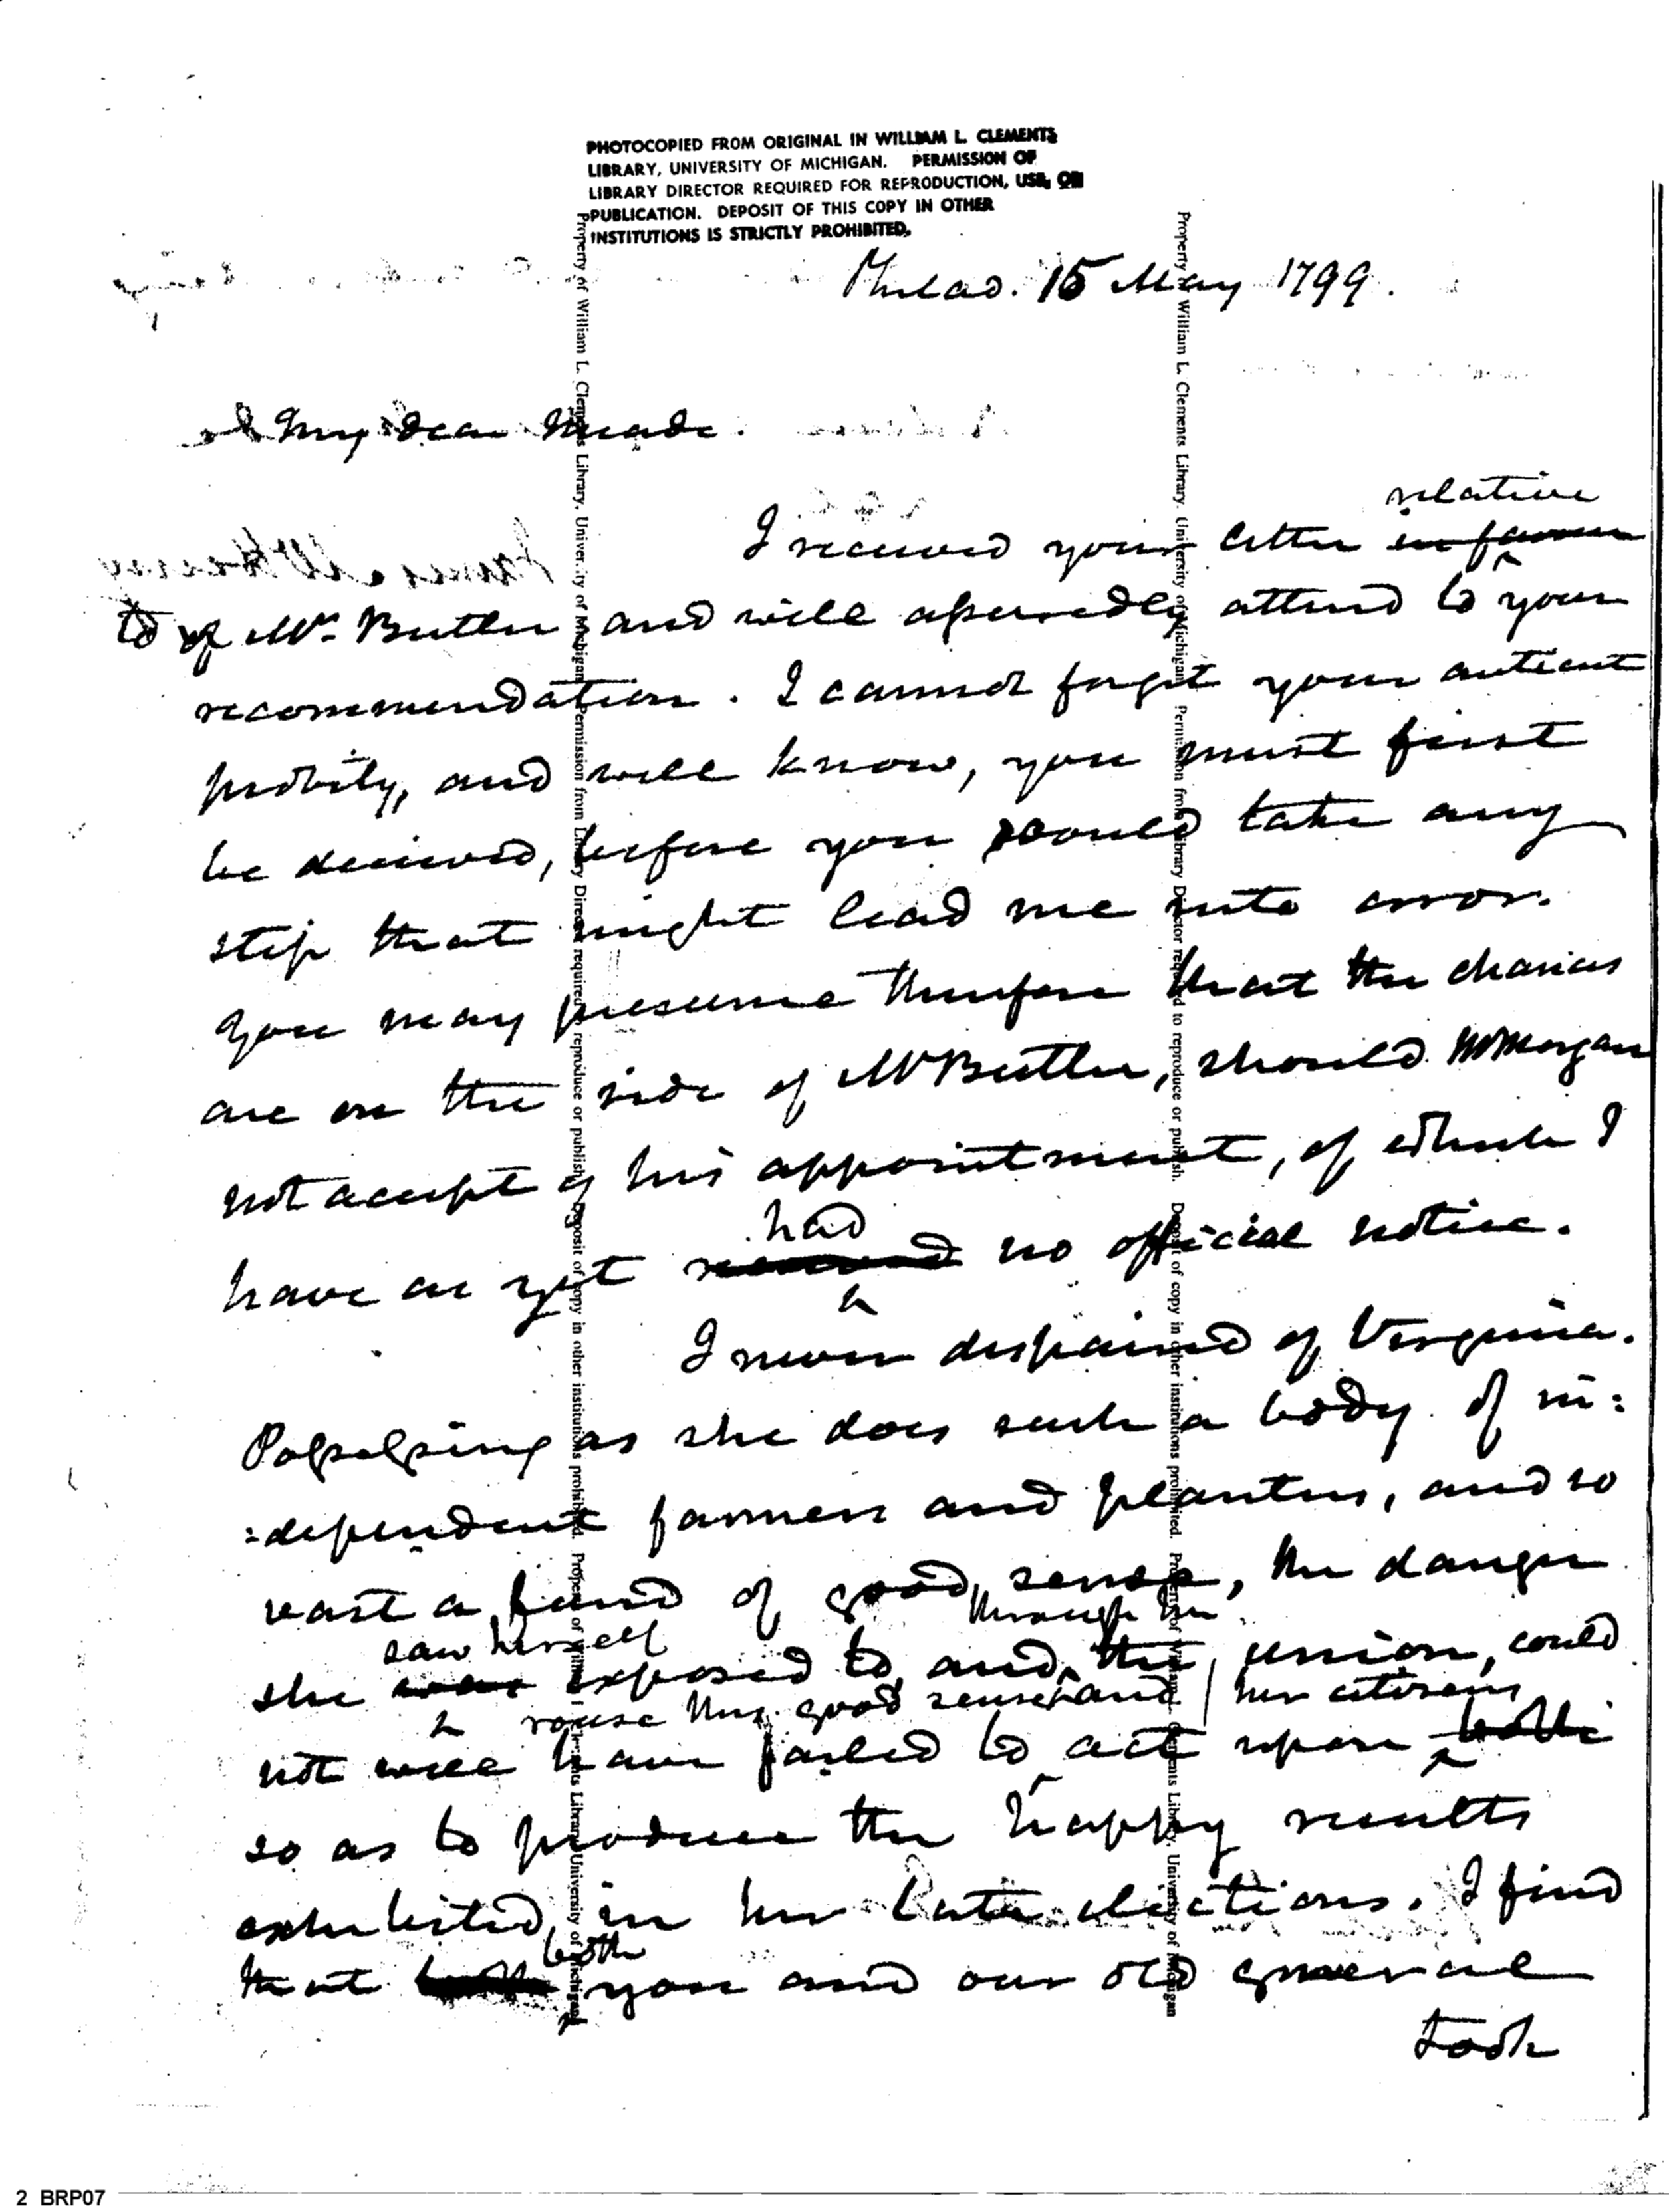 PHOTOCOPIED FROM ORIGINAL IN WILLIAM L. CLEMENTS
LIBRARY, UNIVERSITY OF MICHIGAN. PERMISSION OF
LIBRARY DIRECTOR REQUIRED FOR REPRODUCTION, USE, OR
PUBLICATION. DEPOSIT OF THIS COPY IN OTHER
INSTITUTIONS IS STRICTLY PROHIBITED.
Property of William L. Clements Library, University of Michigan. Permission from Library Director required to reproduce or publish. Deposit of copy in other institutions prohibited. Property of William L. Clements Library, University of Michigan
Property of William L. Clements Library, University of Michigan. Permission from Library Director required to reproduce or publish. Deposit of copy in other institutions prohibited. Property of William L. Clements Library, University of Michigan
Philad. 15 May 1799.
My dear Meade.
relative
I received your letter in favour
to of Mr. Butler and will assuredly attend to your
recommendation. I cannot forget your antient
probity, and well know, you must first
be deceived, before you would take any
step that might lead me into error.
You may presume therefore that the chances
are on the side of Mr Butler, should Mr Morgan
not accept of his appointment, of which I
had
have as yet received no official notice.
I never despaired of Virginia.
Possessing as she does such a body of in:
:dependent farmers and planters, and so
vast a fund of good sense, the danger
saw herself through her
she was exposed to and the union, could
rouse this good sense and her citizens
not well have failed to act upon both
so as to produce the happy results
exhibited in her late elections. I find
both
that both you and our old general
took
2 BRP07